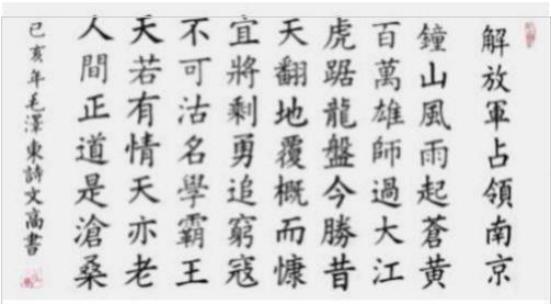 解放軍占領南京
鐘山風雨起蒼黄
百萬雄師過大江
虎踞龍盤今勝昔
天翻地覆概而慷
宜將剩勇追窮寇
不可沽名學霸王
天若有情天亦老
人間正道是滄桑
己亥年毛澤東詩文高書